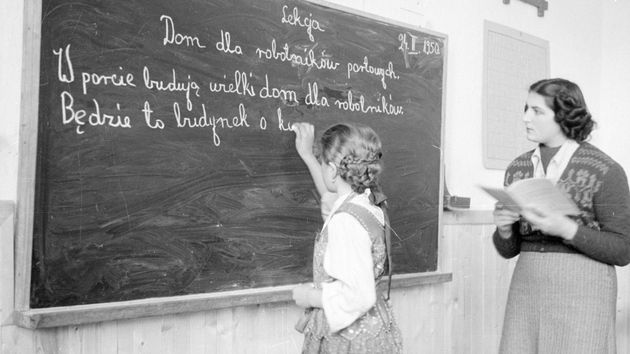 Lekcja
24. II 1950
Dom dla robotników portowych.
W porcie budują wielki dom dla robotników.
Będzie to budynek o ku